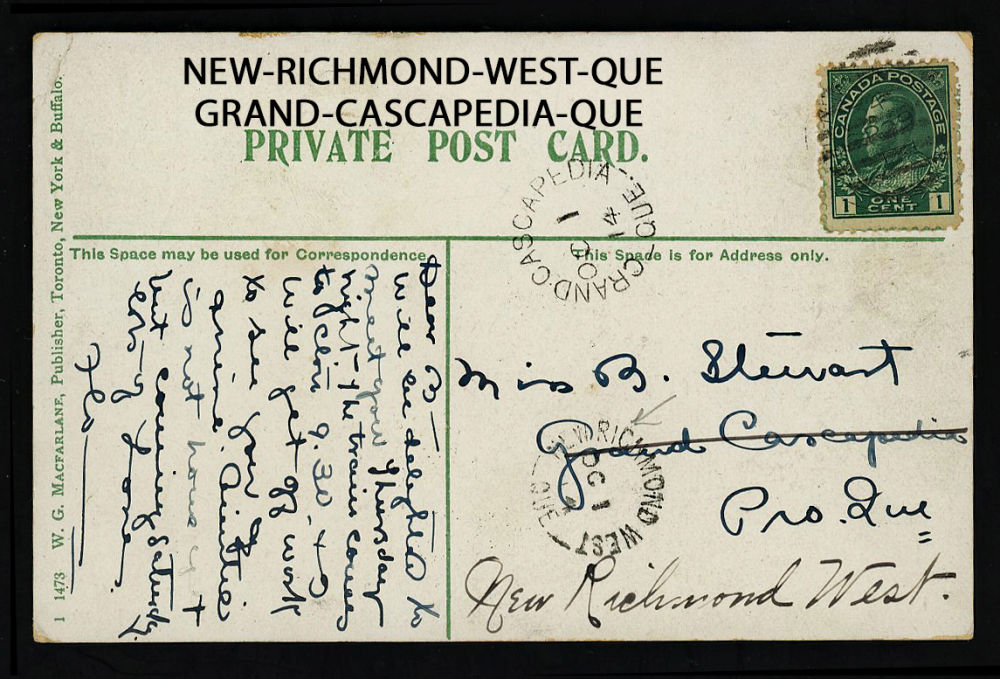 NEW-RICHMOND-WEST-QUE
GRAND-CASCAPEDIA-QUE
PRIVATE POST CARD.
CANADA POSTAGE
1 ONE CENT 1
GRAND-CASCAPEDIA-QUE.
OC 1
14
This Space may be used for Correspondence
This Space is for Address only.
1 1473 W. G. MACFARLANE, Publisher, Toronto, New York & Buffalo.
Dear B–
Will be delighted to
meet you Thursday
night – the train comes
to Clon 9.30, +
Will get off work
to see you. Aunties
arrive
is not home yet
but coming Saturday
Flo
Miss B. Stewart
Grand Cascapedia
Pro. Que
New Richmond West.
NEW RICHMOND WEST
QUE
OC 1